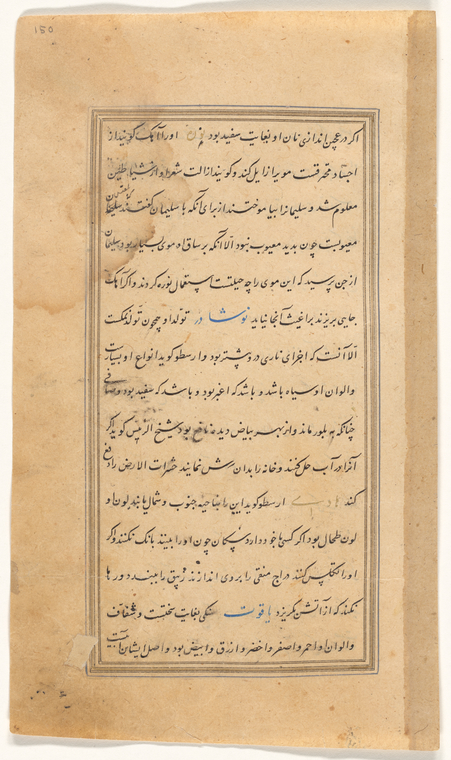 150
اگر در عجین اندازی نان او بغایت سفید بود او را آهک گویند از
محرقست مویرا زایل کند و گویند از الت شعر او از شیاطین
معلوم شد و سلیمانرا بیاموختند از برای آنکه با سلیمان گفتند
معیوبست چون بدید معیوب نبود الا آنکه بر ساق او موی بسیار بود سلیمان
از جن پرسید که این موی را چه حیلتست استعمال نوره کردند و اگر آهک
جایی بریزند براغیث آنجا نیاید نوشادر تولد او چون تولد نمکست
الا آنست که اجزای ناری در و بیشتر بود و ارسطو گوید انواع او بسیارست
و الوان او سیاه باشد و باشد که اغبر بود و باشد که سفید بود و صافی
چنانکه به بلور ماند و از بهر بیاض دیده نافع بود شیخ الرئیس گوید اگر
آنرا در آب حل کنند و خانه را بدان رش نمایند حشرات الارض را دفع
کند ارسطو گوید این را بناحیه جنوب و شمال یابند لون او
لون طحال بود اگر کسی با خود دارد سگان چون او را بینند بانک نکنند و اگر
او را کلس کنند و زاج منقی را بر وی اندازند زیبق را ببندد و رها
نکند که از آتش بگریزد یاقوت سنگی بغایت سختست و شفاف
و الوان او احمر و اصفر و اخضر و ازرق و ابیض بود و اصل ایشان